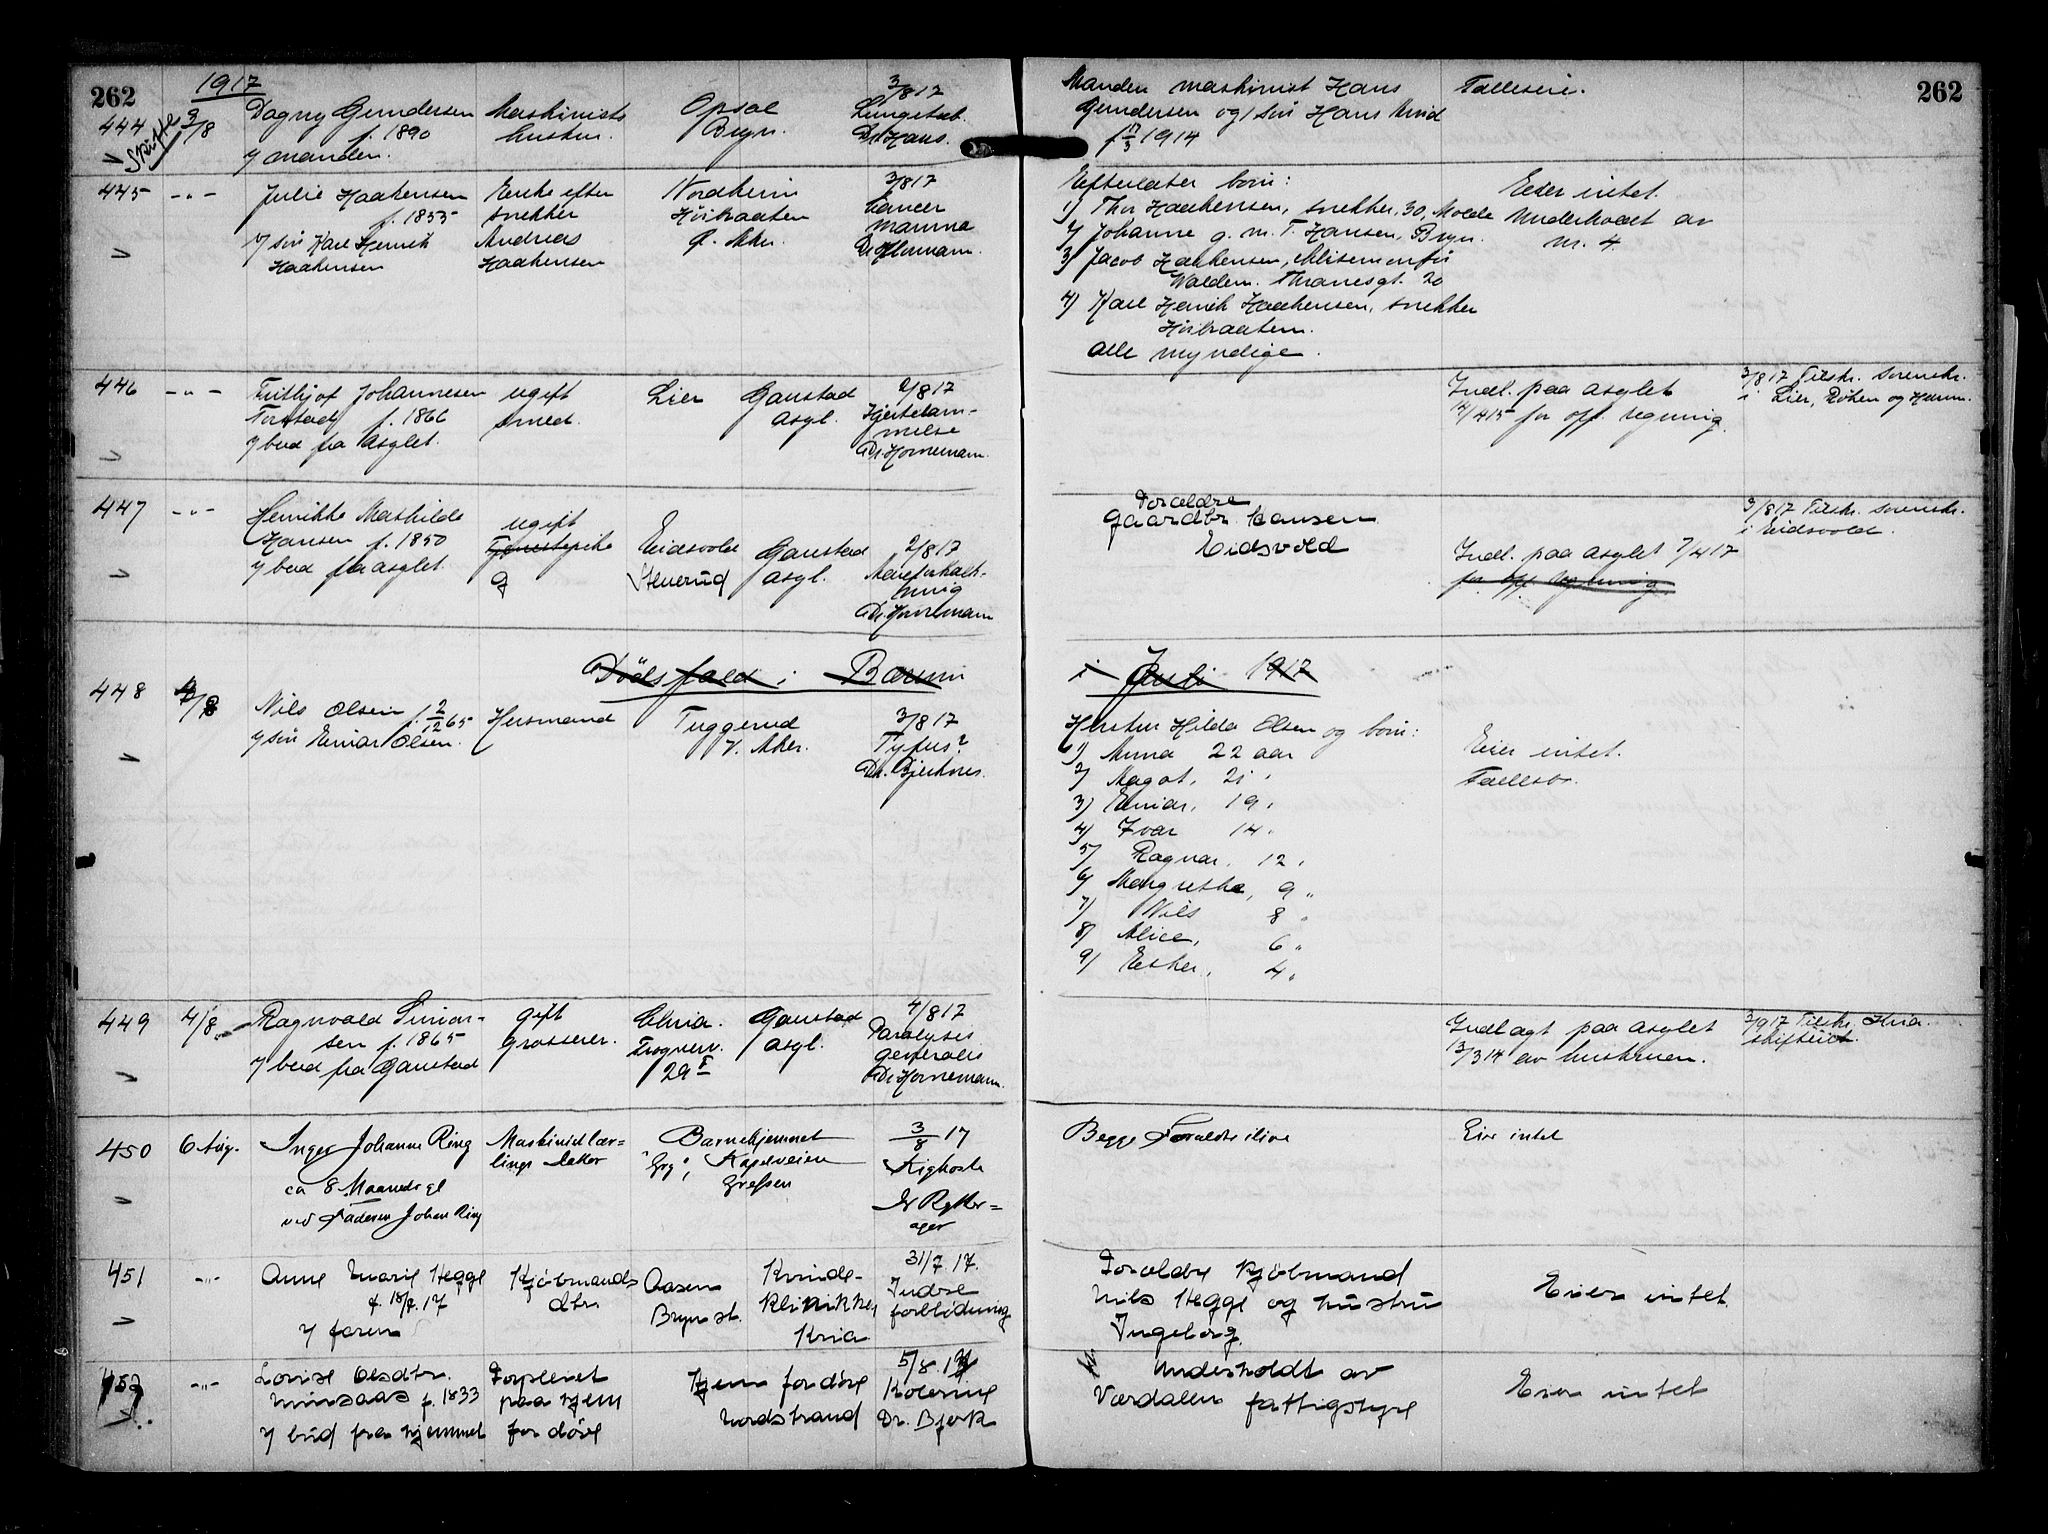 262
1917
444
Skifte
3/8
Dagny Gundersen
f. 1890
v/ manden.
Maskinists
hustru.
Opsal
Bryn.
3/8 17
Lungetub.
Dr. Hans.
Manden maskinist Hans
Gundersen og 1 søn Hans
f. 17/3 1914
Fælleseie.
262
445
-"-
Julie Haakensen
f. 1855
v/ søn Karl Henrik
Haakensen
Enke efter
snekker
Andreas
Haakensen
Nordheim
Høibraaten
Ø. Aker.
3/8 17
Cancer
mamma
Dr. Hornemann.
Efterlater børn:
1) Thor Haakensen, snekker, 30, Molde
2) Johanne g. m. T. Hansen, Bryn.
3) Jacob Haakensen,
Waldem. Thranesgt. 20
4) Karl Henrik Haakensen, snekker
Høibraaten.
alle myndige.
Eier intet.
Underholdt av
nr. 4.
446
-"-
Frithjof Johannesen
f. 1866
v/ bud fra Asylet.
ugift
smed.
Lier
Gaustad
Asyl.
2/8 17
Hjertelam-
melse
Dr. Hornemann.
Indl. paa asylet
14/4 15 for off. regning.
3/8 17 Tilskr. sorenskr.
i Lier, Røken og Hurum.
447
-"-
Henrikke Mathilde
Hansen f. 1850
v/ bud fra asylet.
ugift
Tjenestepike
Eidsvold
Stenerud
Gaustad
Asyl.
2/8 17
Aareforkalk-
ning
Dr. Hornemann
Forældre
Gaardbr. Hansen
Eidsvold
Indl. paa asylet 7/4 17
for off. regning.
3/8 17 Tilskr. sorenskr.
i Eidsvold.
Dødsfald i Bærum
i Juli 1917
448
4/8
Nils Olsen f. 2/12 65
v/ søn Einar Olsen.
Husmand
Tuggerud
V. Aker.
3/8 17
Tyfus?
Dr. Bjerknes.
Hustru Hilda Olsen og børn:
1) Anna 22 aar
2) Magot, 21 "
3) Einar, 19 "
4) Ivar 14 "
5) Ragnar, 12 "
6) Margrethe, 9 "
7) Nils 8 "
8) Alice, 6 "
9) Esther, 4 "
Eier intet.
Fællesbo.
449
4/8
Ragnvald Simon-
sen f. 1865
v/ bud fra Gaustad
gift
Grosserer.
Chria.
Frognerv.
29 I
Gaustad
Asyl.
4/8 17
Paralysis
generalis
Dr. Hornemann.
Indlagt paa asylet
13/3 14 av hustruen.
3/9 17 Tilskr. Kria.
skifteret.
450
6 Aug.
Inger Johanne Ring
ca 8 Maaneder gl
ved Faderen Johan Ring
Maskinistlær-
lings datter
Barnehjemmet
"Gry", Kapelveien
Grefsen
3/8 17
Kighoste
Dr Rytter-
ager
Begge Forældre ilive
Eier intet
451
-"-
Anne Marie Hegge
f. 18/7. 17
v/ faren
Kjøbmands
dtr.
Aasen
Bryn st.
Kvinde-
klinikken
Kria
31/7 17.
Indre
forblødning
Forældre Kjøbmand
Nils Hegge og hustru
Ingeborg.
Eier intet
452
-"-
Lovise Olsdtr.
Minsaas f. 1833
v/ bud fra hjemmet
Forpleiet
paa hjem
for døve
Hjem for døve
Nordstrand
5/8 17
Kolerine
Dr. Bjerk
Underholdt av
Værdalen fattigstyre
Eier intet